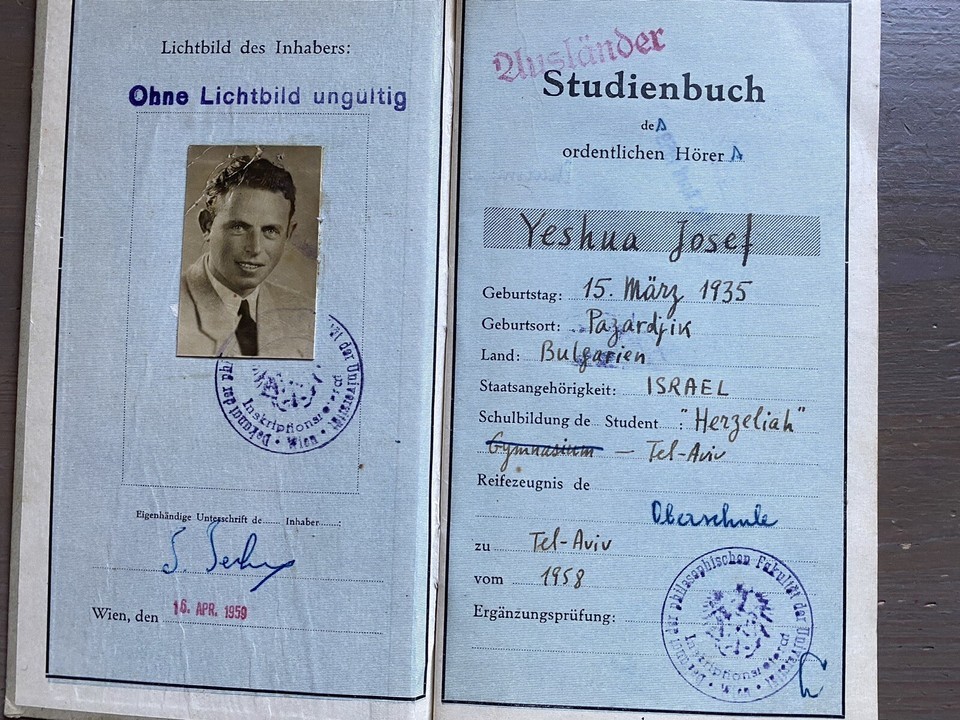 Lichtbild des Inhabers:
Ohne Lichtbild ungültig
Dekanat der Phil Universität Wien
Inskriptionsreferat
Eigenhändige Unterschrift de...... Inhaber......:
Wien, den 16. APR. 1959
Ausländer
Studienbuch
des
ordentlichen Hörers
Yeshua Josef
Geburtstag: 15. März 1935
Geburtsort: Pazardjik
Land: Bulgarien
Staatsangehörigkeit: ISRAEL
Schulbildung de... Student.....: "Herzeliah"
Gymnasium — Tel-Aviv
Reifezeugnis de
Oberschule
zu Tel-Aviv
vom 1958
Ergänzungsprüfung:
Dekanat der philosophischen Fakultät der Universität Wien
Inskriptionsreferat